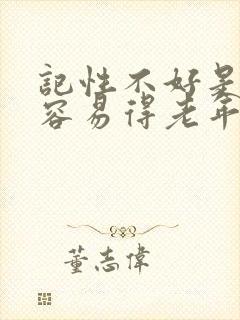 記性不好是
容易得老年
董志偉